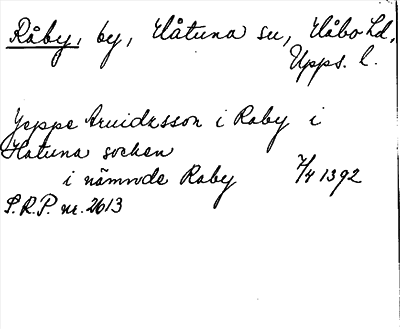 Råby, by, Håtuna sn, Håbo hd,
Upps. l.
Jeppe Arvidzsson i Raby i
Hatuna socken
i nämnde Raby 7/4 1392
S.R.P. nr. 2613